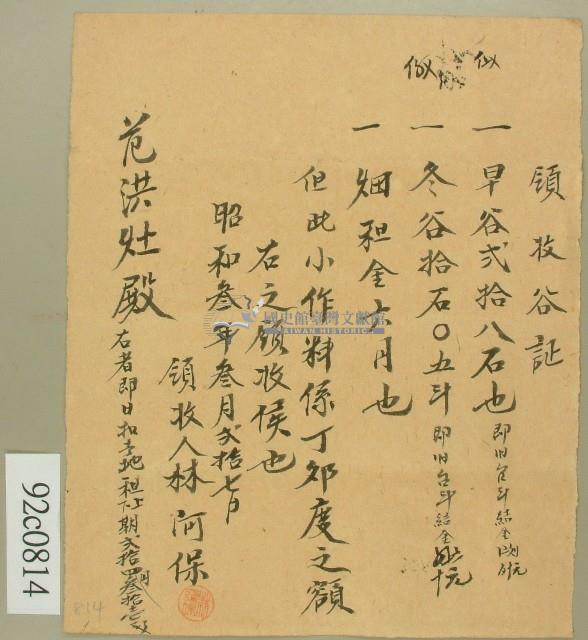 領收谷証
一 早谷弍拾八石也 即旧台斗結金
一 冬谷拾石〇五斗 即旧台斗結金
一 畑租金六円也
但此小作料係丁卯度之額
右之領收候也
昭和叁年叁月弍拾七日
領收人林阿保
范洪灶殿
右者即日扣去地租上下期弍拾四円叁拾壱
國史館臺灣文獻館
TAIWAN HISTORICA
92c0814
814